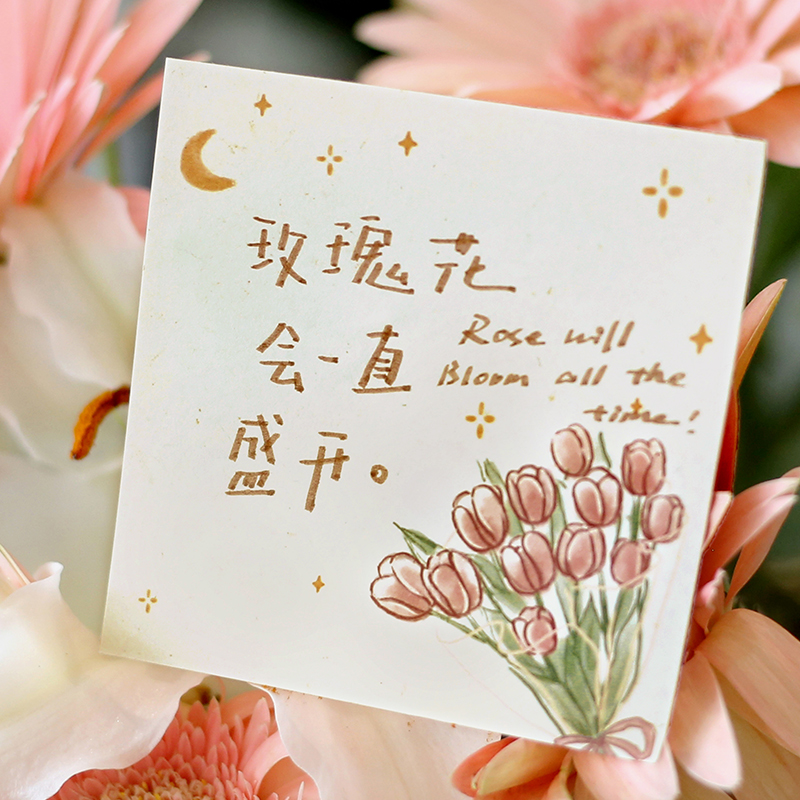 玫瑰花
会一直
盛开。
Rose will
Bloom all the
time!